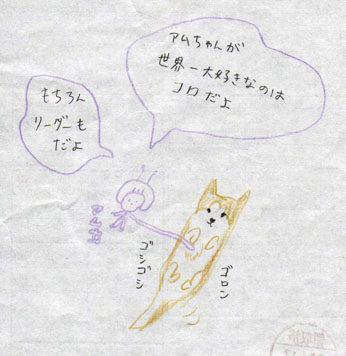 アムちゃんが
世界一大好きなのは
コロだよ
もちろん
リーダーも
だよ
ゴシゴシ
ゴロン